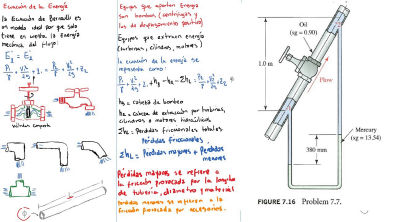 Ecuación de la Energía
La Ecuación de Bernoulli es
un modelo ideal por que solo
tiene en cuenta la Energía
mecánica del flujo.
E₁ = E₂
P₁/γ + V₁²/2g + z₁ = P₂/γ + V₂²/2g + z₂
Válvula compuerta
Equipos que aportan Energía
son bombas (centrífugas y
las de desplazamiento positivo)
Equipos que extraen energía
(turbinas, cilindros, motores)
La ecuación de la energía se
representa como:
P₁/γ + V₁²/2g + z₁ + hB - hE - ΣhL = P₂/γ + V₂²/2g + z₂
hB = cabeza de bombeo
hE = cabeza de extracción por turbinas,
cilindros o motores hidráulicos
ΣhL = Pérdidas friccionales totales
Pérdidas friccionales,
ΣhL = Pérdidas mayores + Pérdidas
menores
Pérdidas mayores se refiere a
la fricción provocada por la longitud
de tubería, diámetro y material
Pérdidas menores se refieren a la
fricción provocada por accesorios.
Oil
(sg = 0.90)
Flow
1.0 m
Mercury
(sg = 13.54)
380 mm
FIGURE 7.16 Problem 7.7.